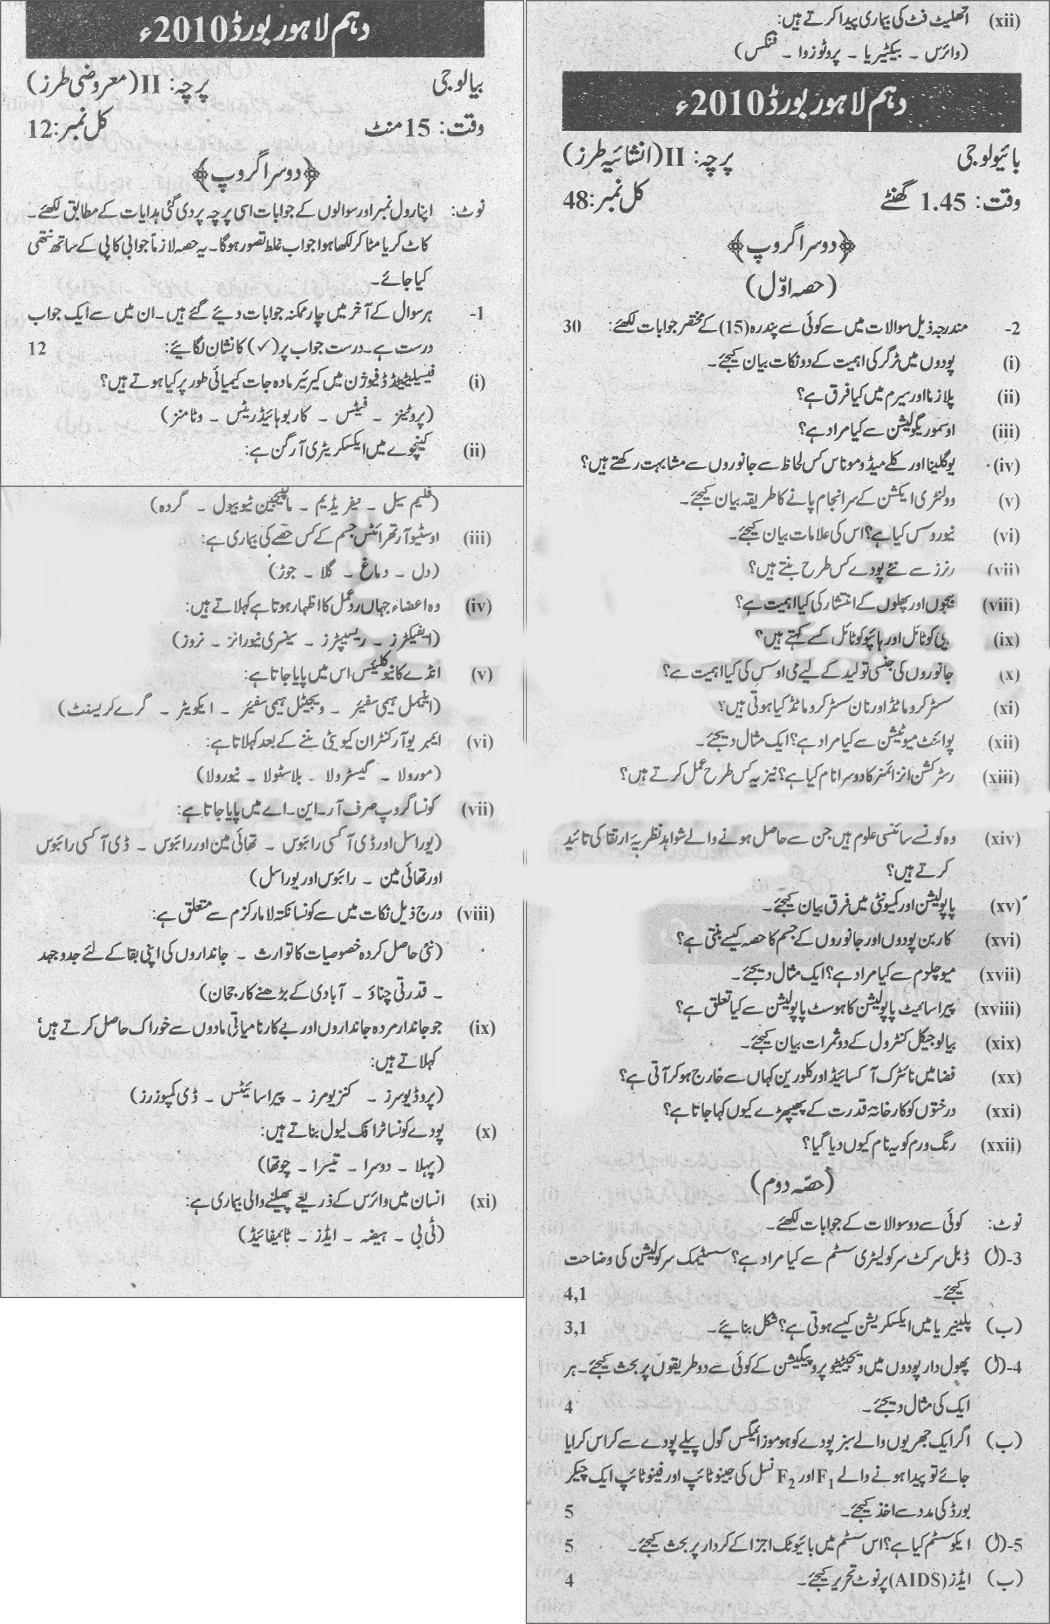 دہم لاہور بورڈ 2010ء
بیالوجی پرچہ: II (معروضی طرز)
وقت: 15 منٹ کل نمبر: 12
﴿دوسرا گروپ﴾
نوٹ: اپنا رول نمبر اور سوالوں کے جوابات اسی پرچہ پر دی گئی ہدایات کے مطابق لکھئے۔
کاٹ کر یا مٹا کر لکھا ہوا جواب غلط تصور ہوگا۔ یہ حصہ لازماً جوابی کاپی کے ساتھ نتھی
کیا جائے۔
1- ہر سوال کے آخر میں چار ممکنہ جوابات دیئے گئے ہیں۔ ان میں سے ایک جواب
درست ہے۔ درست جواب پر (✓) کا نشان لگائیے: 12
(i) فیسیلیٹیٹڈ ڈفیوژن میں کیرئیر مادہ جات کیمیائی طور پر کیا ہوتے ہیں؟
(پروٹینز ۔ فیٹس ۔ کاربوہائیڈریٹس ۔ وٹامنز)
(ii) کیچوے میں ایکسکریٹری آرگن ہے:
(فلیم سیل ۔ نیفریڈیم ۔ مالپیجین ٹیوبیول ۔ گردہ)
(iii) اوسٹیوآرتھرائٹس جسم کے کس حصے کی بیماری ہے:
(دل ۔ دماغ ۔ گلا ۔ جوڑ)
(iv) وہ اعضاء جہاں ردِعمل کا اظہار ہوتا ہے کہلاتے ہیں:
(ایفیکٹرز ۔ ریسیپٹرز ۔ سینسری نیورانز ۔ نروز)
(v) انڈے کا نیوکلیئس اس میں پایا جاتا ہے:
(اینیمل ہیمی سفیئر ۔ ویجیٹل ہیمی سفیئر ۔ ایکویٹر ۔ گرے کریسنٹ)
(vi) ایمبریو آرکنٹران کیویٹی بننے کے بعد کہلاتا ہے:
(مورولا ۔ گیسٹرولا ۔ بلاسٹولا ۔ نیورولا)
(vii) کونسا گروپ صرف آر۔این۔اے میں پایا جاتا ہے:
(یوراسل اور ڈی آکسی رائبوس ۔ تھائی مین اور رائبوس ۔ ڈی آکسی رائبوس
اور تھائی مین ۔ رائبوس اور یوراسل)
(viii) درج ذیل نکات میں سے کونسا نکتہ لامارکزم سے متعلق ہے:
(نئی حاصل کردہ خصوصیات کا توارث ۔ جانداروں کی اپنی بقا کے لئے جدوجہد
۔ قدرتی چناؤ ۔ آبادی کے بڑھنے کا رجحان)
(ix) جو جاندار مردہ جانداروں اور بے کار نامیاتی مادوں سے خوراک حاصل کرتے ہیں'
کہلاتے ہیں:
(پروڈیوسرز ۔ کنزیومرز ۔ پیراسائیٹس ۔ ڈی کمپوزرز)
(x) پودے کونسا ٹرافک لیول بناتے ہیں:
(پہلا ۔ دوسرا ۔ تیسرا ۔ چوتھا)
(xi) انسان میں وائرس کے ذریعے پھیلنے والی بیماری ہے:
(ٹی بی ۔ ہیضہ ۔ ایڈز ۔ ٹائیفائیڈ)
(xii) اتھلیٹ فٹ کی بیماری پیدا کرتے ہیں:
(وائرس ۔ بیکٹیریا ۔ پروٹوزوا ۔ فنگس)
دہم لاہور بورڈ 2010ء
بائیولوجی پرچہ: II (انشائیہ طرز)
وقت: 1.45 گھنٹے کل نمبر: 48
﴿دوسرا گروپ﴾
(حصہ اوّل)
2- مندرجہ ذیل سوالات میں سے کوئی سے پندرہ (15) کے مختصر جوابات لکھئے: 30
(i) پودوں میں ٹرگر کی اہمیت کے دو نکات بیان کیجئے۔
(ii) پلازما اور سیرم میں کیا فرق ہے؟
(iii) اوسموریگولیشن سے کیا مراد ہے؟
(iv) یوگلینا اور کلےمیڈوموناس کس لحاظ سے جانوروں سے مشابہت رکھتے ہیں؟
(v) وولنٹری ایکشن کے سرانجام پانے کا طریقہ بیان کیجئے۔
(vi) نیوروسس کیا ہے؟ اس کی علامات بیان کیجئے۔
(vii) رنرز سے نئے پودے کس طرح بنتے ہیں؟
(viii) بیجوں اور پھلوں کے انتشار کی کیا اہمیت ہے؟
(ix) ایپی کوٹائل اور ہائپوکوٹائل کسے کہتے ہیں؟
(x) جانوروں کی جنسی تولید کے لیے می اوسس کی کیا اہمیت ہے؟
(xi) سسٹر کروماٹڈ اور نان سسٹر کروماٹڈ کیا ہوتی ہیں؟
(xii) پوائنٹ میوٹیشن سے کیا مراد ہے؟ ایک مثال دیجئے۔
(xiii) رسٹرکشن انزائمز کا دوسرا نام کیا ہے؟ نیز یہ کس طرح عمل کرتے ہیں؟
(xiv) وہ کونسے سائنسی علوم ہیں جن سے حاصل ہونے والے شواہد نظریۂ ارتقا کی تائید
کرتے ہیں؟
(xv) پاپولیشن اور کمیونٹی میں فرق بیان کیجئے۔
(xvi) کاربن پودوں اور جانوروں کے جسم کا حصہ کیسے بنتی ہے؟
(xvii) میوچلزم سے کیا مراد ہے؟ ایک مثال دیجئے۔
(xviii) پیراسائیٹ پاپولیشن کا ہوسٹ پاپولیشن سے کیا تعلق ہے؟
(xix) بیالوجیکل کنٹرول کے دو ثمرات بیان کیجئے۔
(xx) فضا میں نائٹرک آکسائیڈ اور کلورین کہاں سے خارج ہو کر آتی ہے؟
(xxi) درختوں کو کارخانۂ قدرت کے پھیپھڑے کیوں کہا جاتا ہے؟
(xxii) رنگ ورم کو یہ نام کیوں دیا گیا؟
(حصّہ دوم)
نوٹ: کوئی سے دو سوالات کے جوابات لکھئے۔
3-(ل) ڈبل سرکٹ سرکولیٹری سسٹم سے کیا مراد ہے؟ سسٹیمک سرکولیشن کی وضاحت
کیجئے۔ 4,1
(ب) پلینیریا میں ایکسکریشن کیسے ہوتی ہے؟ شکل بنائیے۔ 3,1
4-(ل) پھول دار پودوں میں ویجیٹیٹو پروپیگیشن کے کوئی سے دو طریقوں پر بحث کیجئے۔ ہر
ایک کی مثال دیجئے۔ 4
(ب) اگر ایک جھریوں والے سبز پودے کو ہوموزائیگس گول پیلے پودے سے کراس کرایا
جائے تو پیدا ہونے والے F₁ اور F₂ نسل کی جینوٹائپ اور فینوٹائپ ایک چیکر
بورڈ کی مدد سے اخذ کیجئے۔ 5
5-(ل) ایکوسسٹم کیا ہے؟ اس سسٹم میں بائیوٹک اجزا کے کردار پر بحث کیجئے۔ 5
(ب) ایڈز (AIDS) پر نوٹ تحریر کیجئے۔ 4